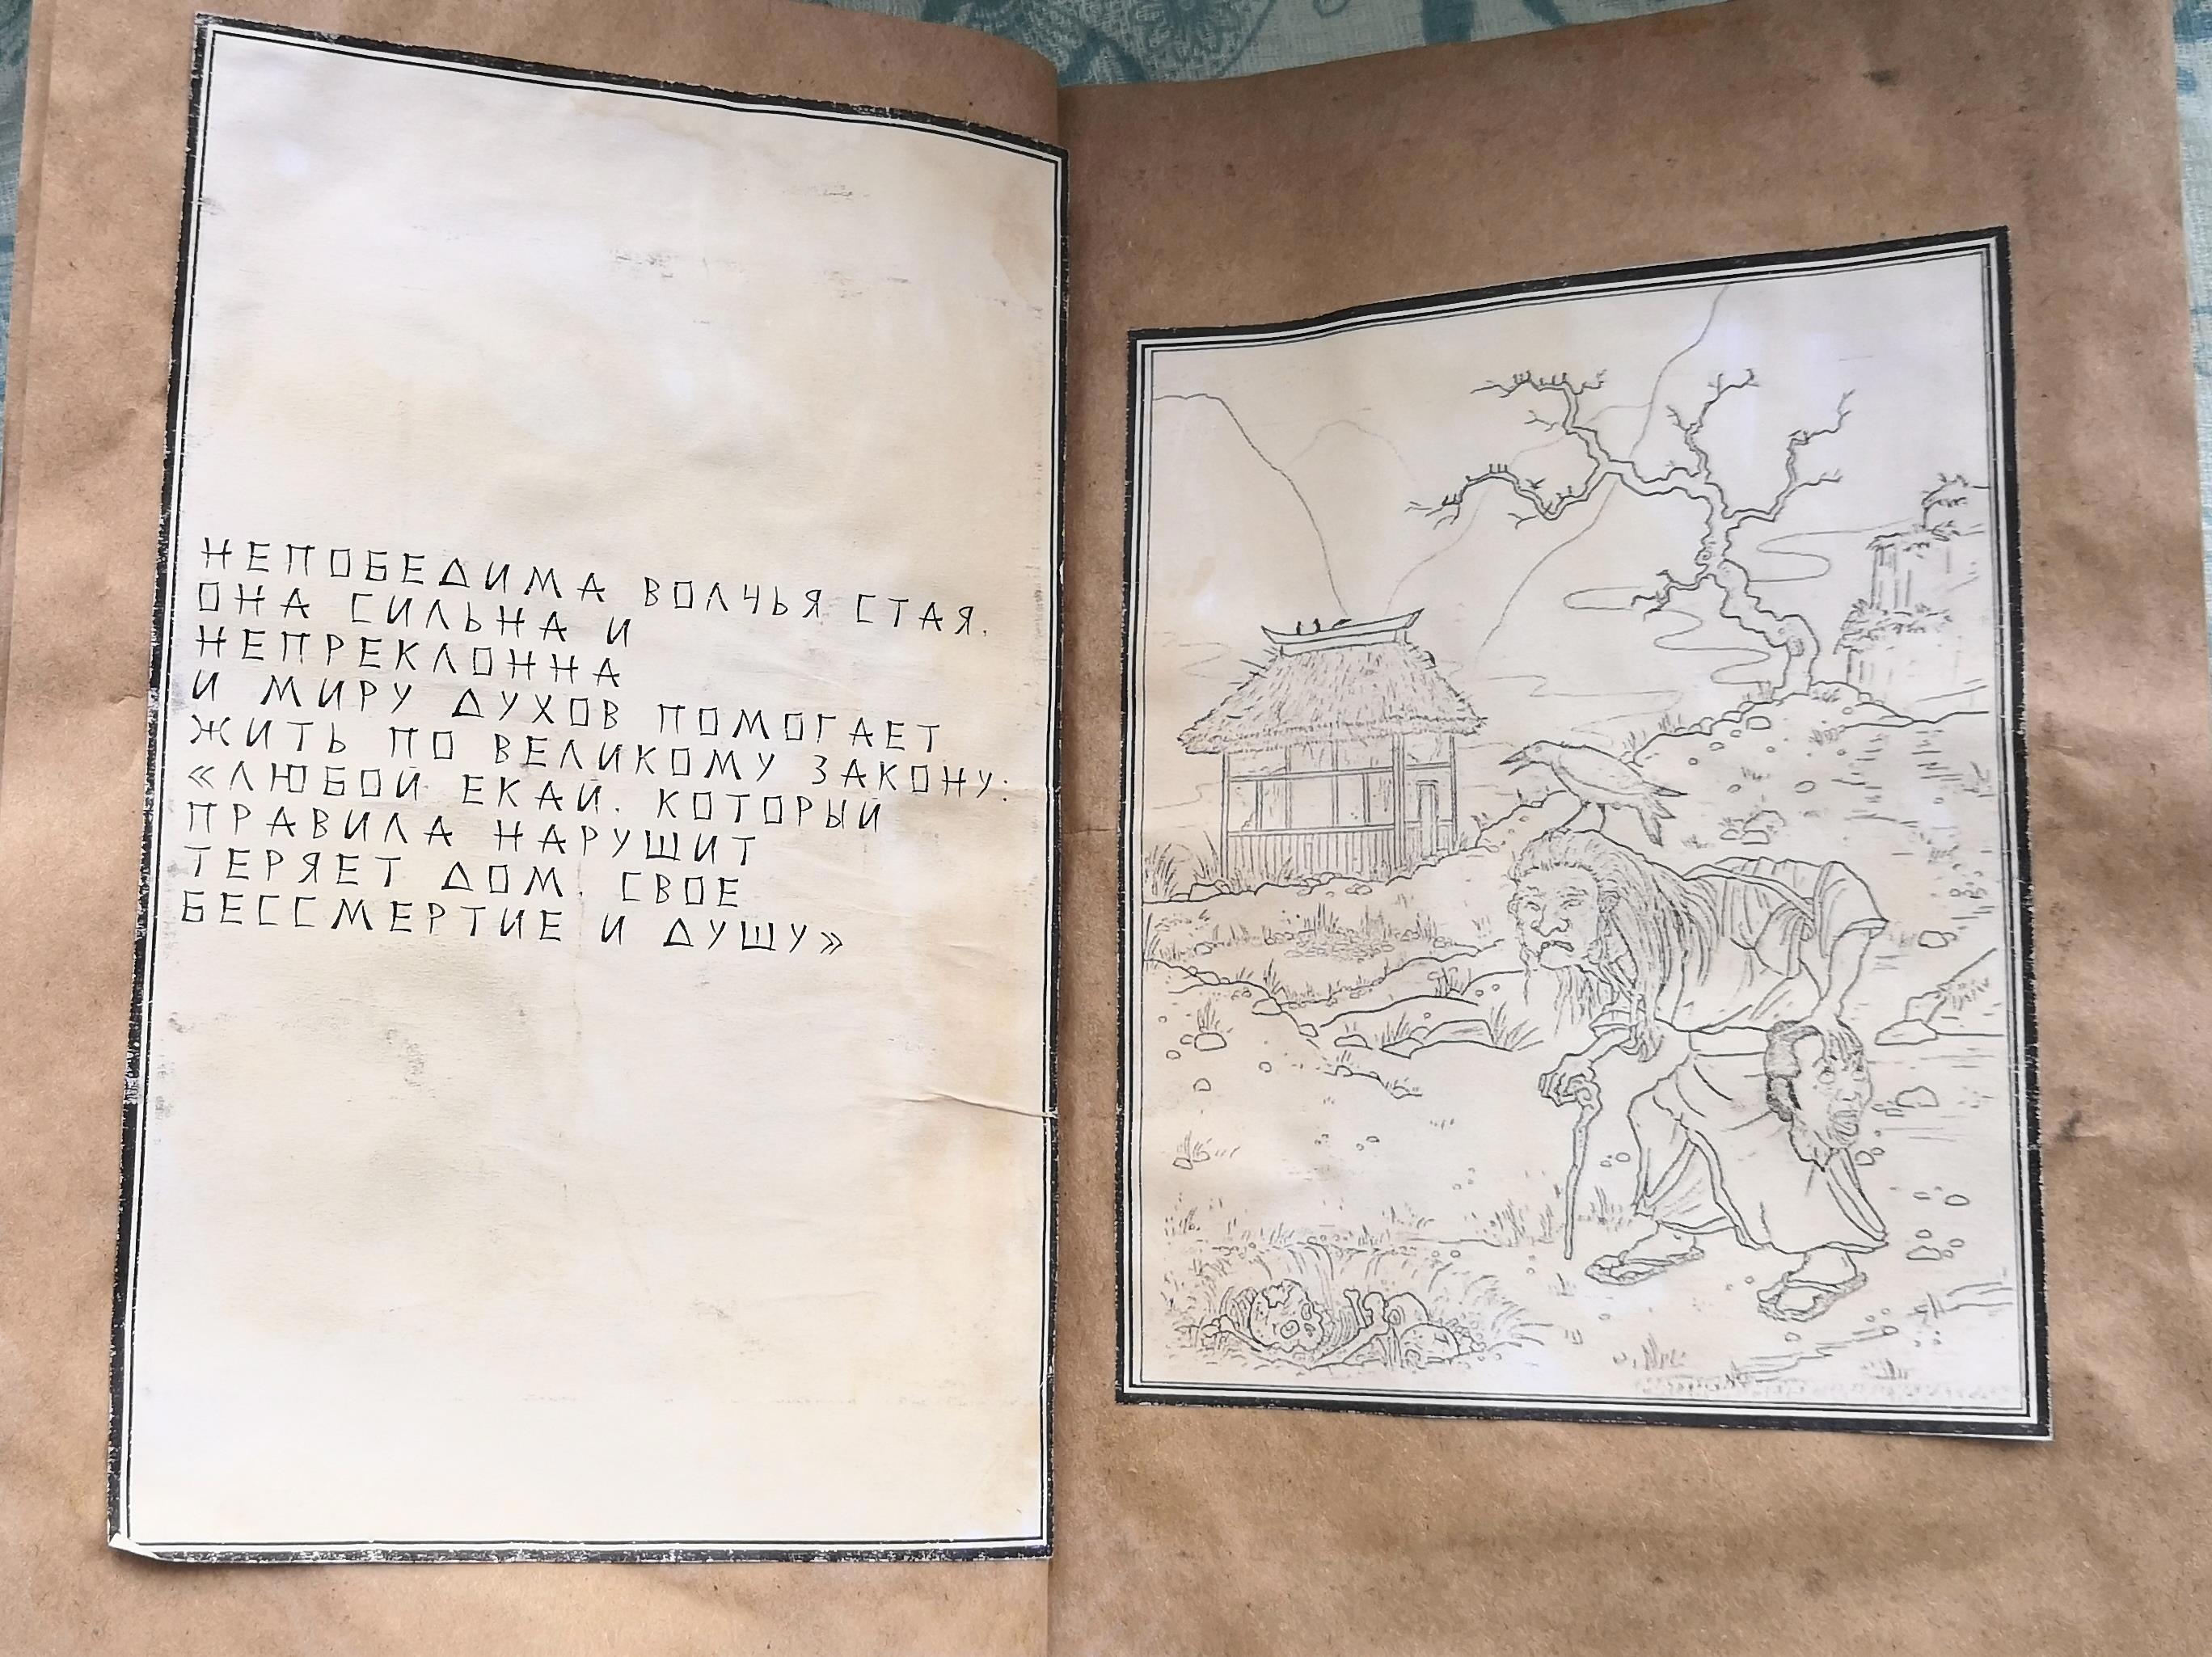 НЕПОБЕДИМА ВОЛЧЬЯ СТАЯ.
ОНА СИЛЬНА И
НЕПРЕКЛОННА
И МИРУ ДУХОВ ПОМОГАЕТ
ЖИТЬ ПО ВЕЛИКОМУ ЗАКОНУ:
«ЛЮБОЙ ЕКАЙ, КОТОРЫЙ
ПРАВИЛА НАРУШИТ
ТЕРЯЕТ ДОМ, СВОЕ
БЕССМЕРТИЕ И ДУШУ»